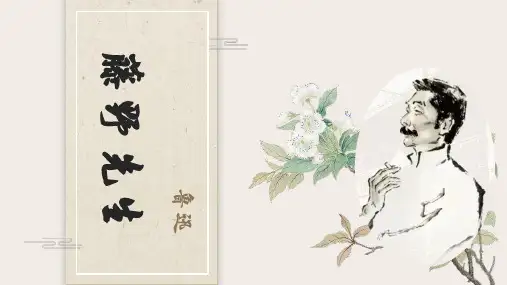 藤野先生
鲁迅